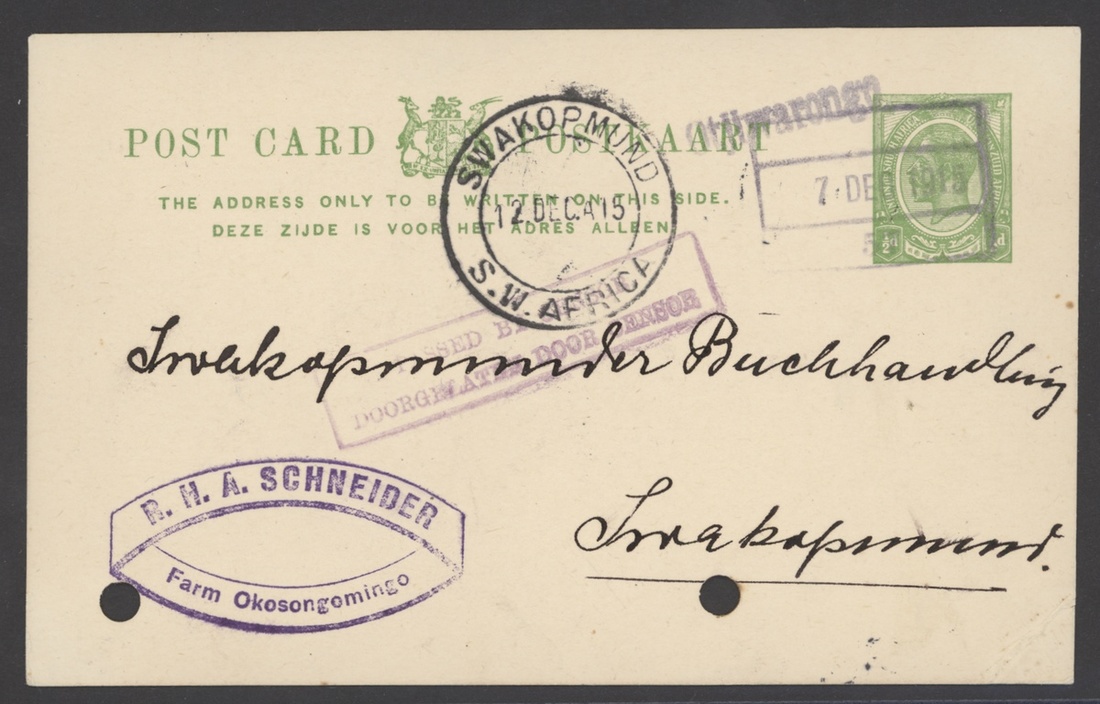 POST CARD POSTKAART
THE ADDRESS ONLY TO BE WRITTEN ON THIS SIDE.
DEZE ZIJDE IS VOOR HET ADRES ALLEEN
SWAKOPMUND
12.DEC.A15
S.W. AFRICA
Otjiwarongo
7 DE 1915
UNION OF SOUTH AFRICA
½d
PASSED BY
DOORGELATEN DOOR CENSOR
Swakopmunder Buchhandlung
Swakopmund.
R. H. A. SCHNEIDER
Farm Okosongomingo